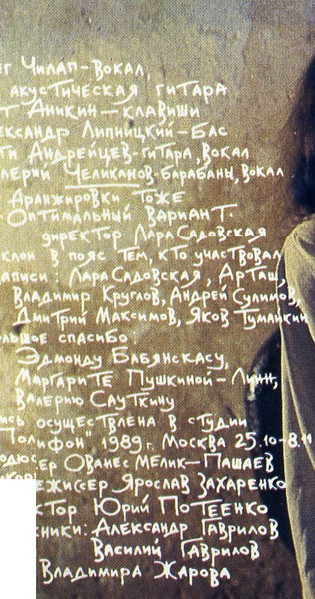 ег Чилап-вокал,
акустическая гитара
т Аникин-клавиши
ександр Липницкий-бас
ги Андрейцев-гитара, вокал
лерий Челиканов-барабаны, вокал
Аранжировки тоже
"Оптимальный вариант."
директор Лара Садовская
клон в пояс тем, кто участвовал
аписи: Лара Садовская, Арташ,
Владимир Круглов, Андрей Сулимов,
Дмитрий Максимов, Яков Тумайкин
льшое спасибо:
Эдмонду Бабянскасу,
Маргарите Пушкиной-Линн,
Валерию Сауткину
ись осуществлена в студии
Полифон" 1989г. Москва 25.10-8.11
одюсер Ованес Мелик-Пашаев
укорежиссер Ярослав Захаренко
ктор Юрий Потеенко
хники: Александр Гаврилов
Василий Гаврилов
Владимира Жарова